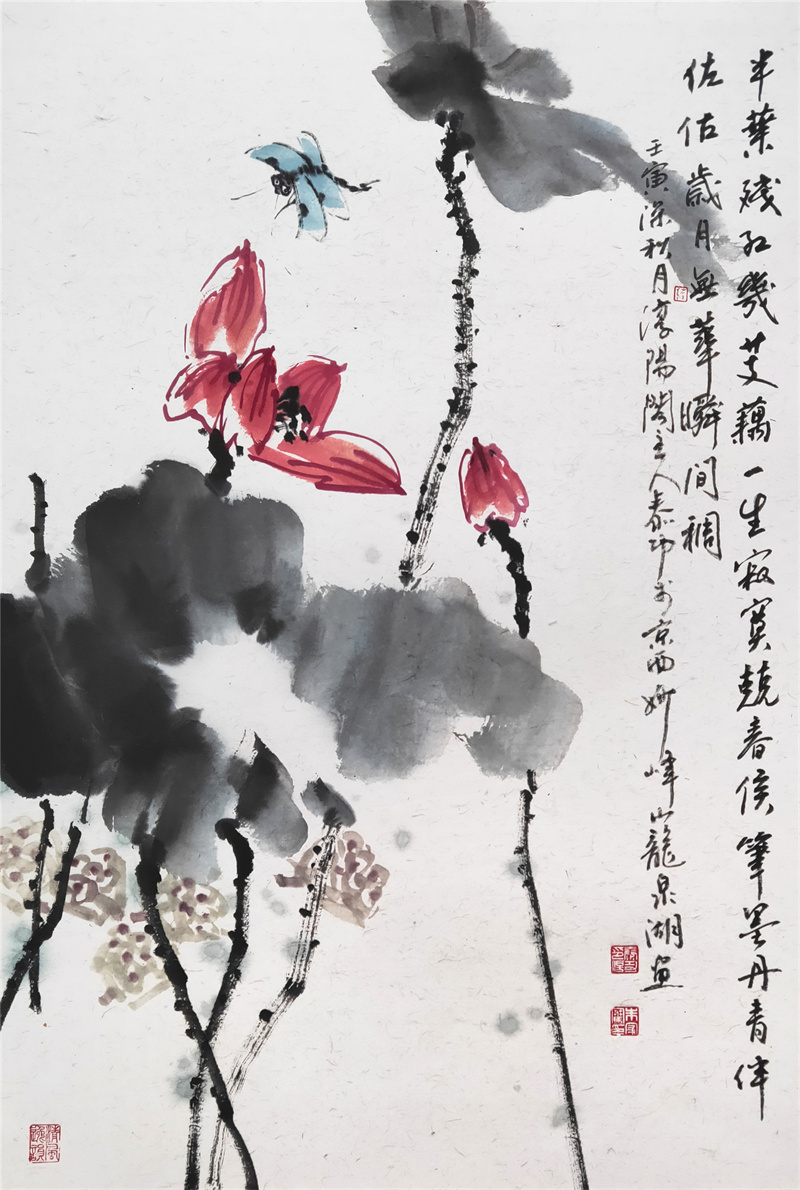 半葉殘紅幾艾藕一生寂寞競春侯筆墨丹青伴
佐佑歲月無華瞬间稠
壬寅深秋月淳陽閣主人泰印於京西妙峰山龍泉湖畫